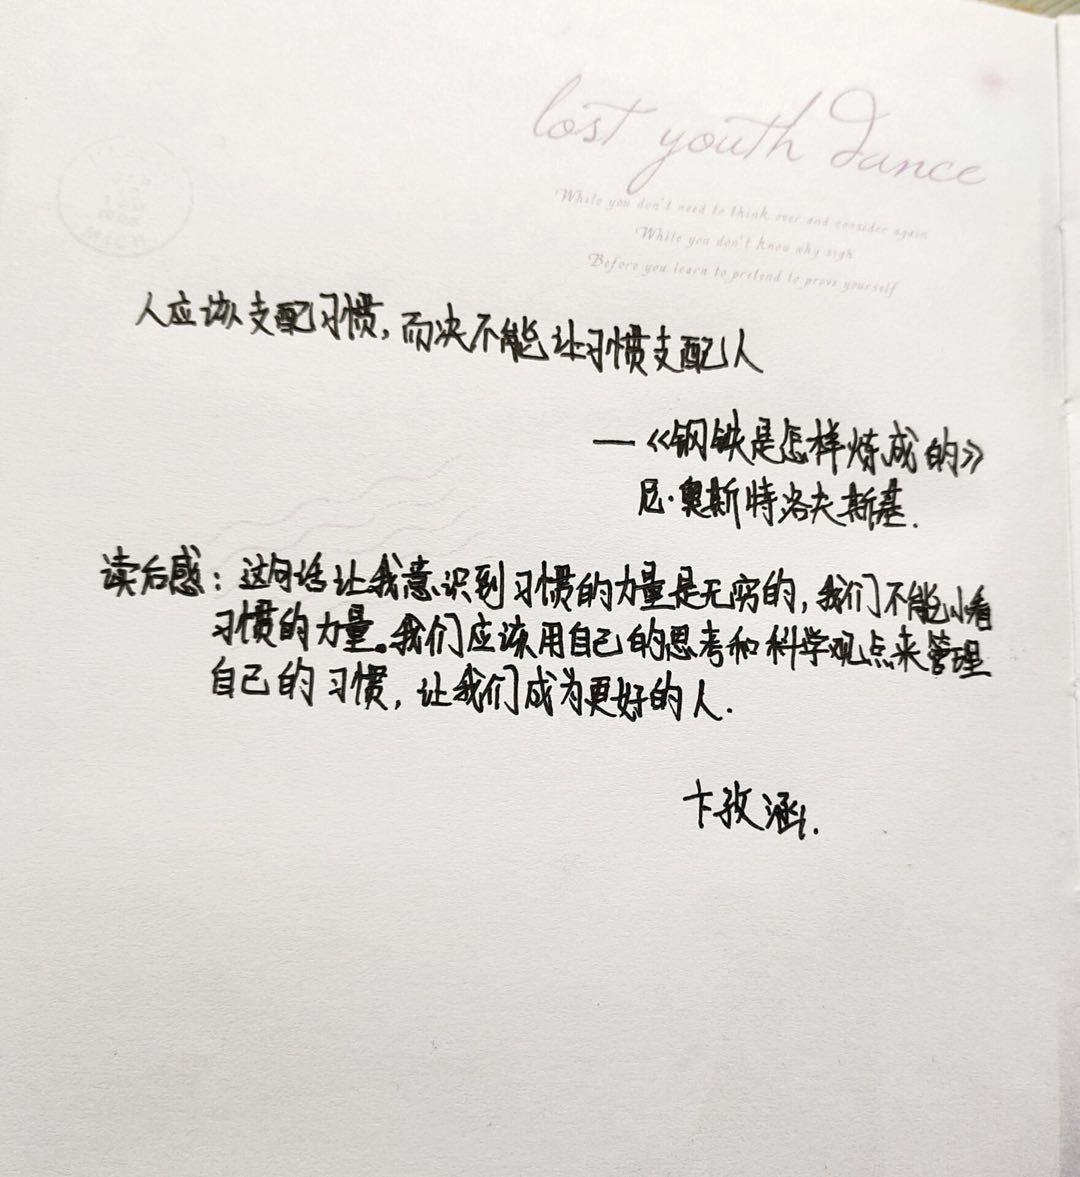 lost youth dance
'While you don't need to think over and consider again
'While you don't know why sigh
Before you learn to pretend to prove yourself
人应该支配习惯,而决不能让习惯支配人
—《钢铁是怎样炼成的》
尼·奥斯特洛夫斯基.
读后感:这句话让我意识到习惯的力量是无穷的,我们不能小看
习惯的力量。我们应该用自己的思考和科学观点来管理
自己的习惯,让我们成为更好的人.
卞孜涵.